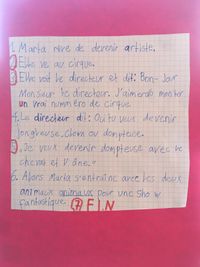 1. Marta rêve de devenir artiste.
2 Elle va au cirque.
3 Elle voit le directeur et dit: Bon-Jour
Monsieur le directeur. J'aimerais monter
un vrai numméro de cirque
4. Le directeur dit: Ou tu veux devenir
jongleuse, clown ou dompteuse.
5. Je veux devenir dompteuse avec le
cheval et l'âne."
6. Alors Marta s'entraîne avec les deux
animaux animaux pour une Show
fantastique. 7 FIN